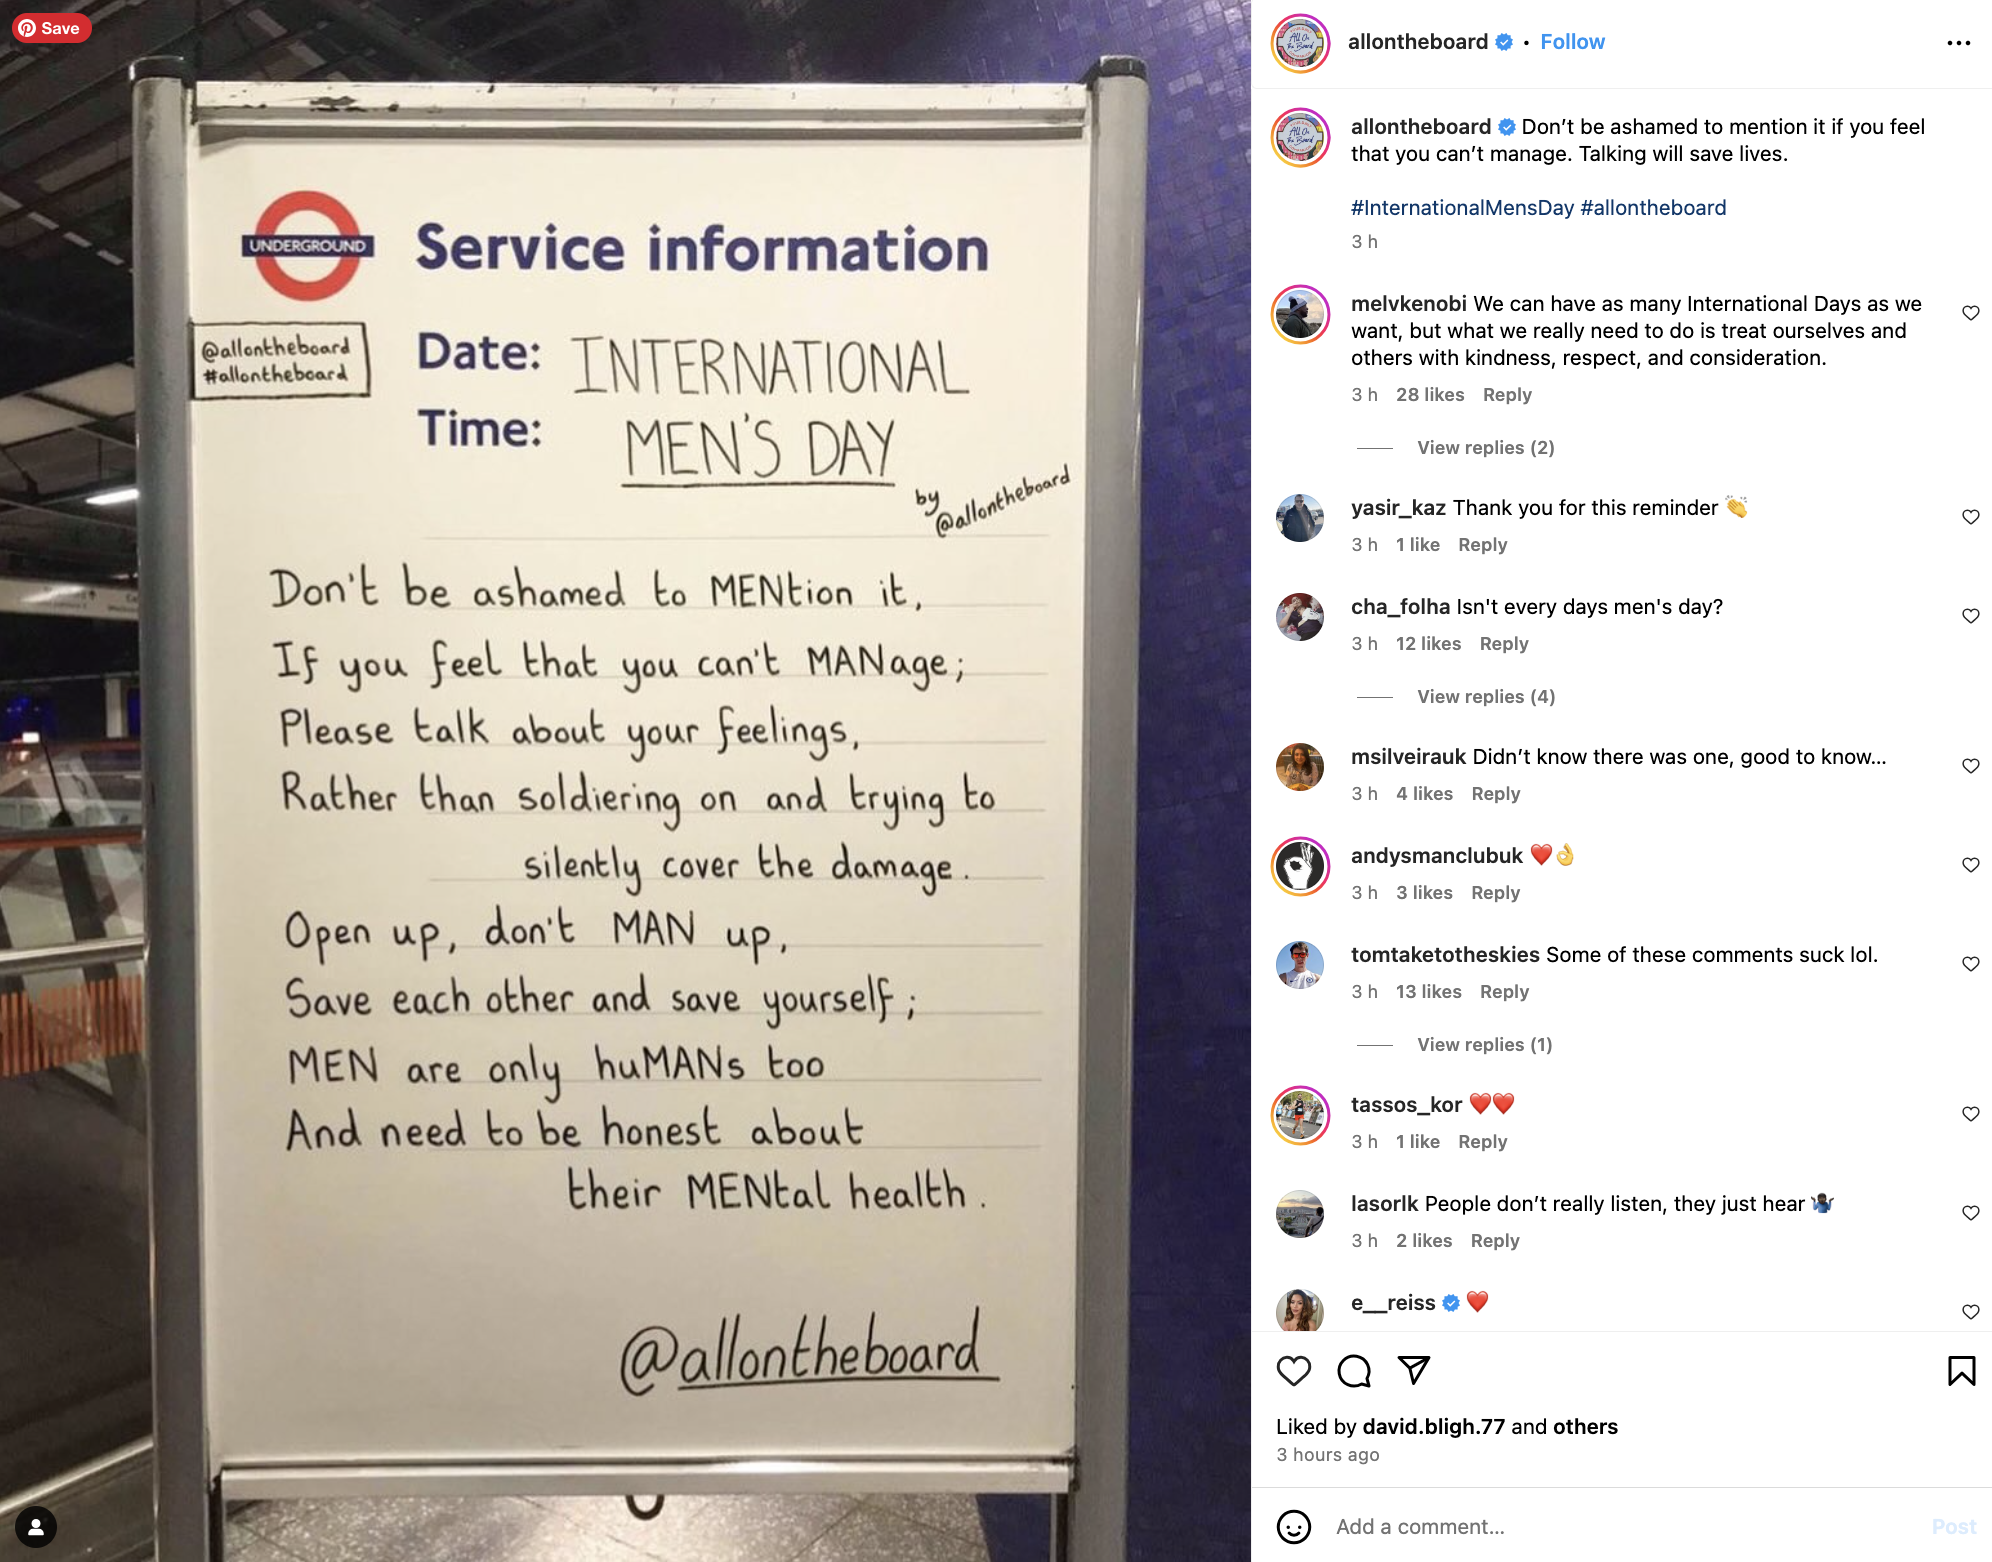 Save
UNDERGROUND
Service information
@allontheboard
#allontheboard
Date: INTERNATIONAL
Time: MEN'S DAY
by
@allontheboard
Don't be ashamed to MENtion it,
If you feel that you can't MANage;
Please talk about your feelings,
Rather than soldiering on and trying to
silently cover the damage.
Open up, don't MAN up,
Save each other and save yourself;
MEN are only huMANs too
And need to be honest about
their MENtal health.
@allontheboard
allontheboard • Follow
allontheboard Don’t be ashamed to mention it if you feel
that you can’t manage. Talking will save lives.
#InternationalMensDay #allontheboard
3 h
melvkenobi We can have as many International Days as we
want, but what we really need to do is treat ourselves and
others with kindness, respect, and consideration.
3 h 28 likes Reply
View replies (2)
yasir_kaz Thank you for this reminder 👏
3 h 1 like Reply
cha_folha Isn't every days men's day?
3 h 12 likes Reply
View replies (4)
msilveirauk Didn’t know there was one, good to know...
3 h 4 likes Reply
andysmanclubuk ❤️👌
3 h 3 likes Reply
tomtaketotheskies Some of these comments suck lol.
3 h 13 likes Reply
View replies (1)
tassos_kor ❤️❤️
3 h 1 like Reply
lasorlk People don’t really listen, they just hear 🤷🏿‍♂️
3 h 2 likes Reply
e__reiss ❤️
Liked by david.bligh.77 and others
3 hours ago
Add a comment...
Post